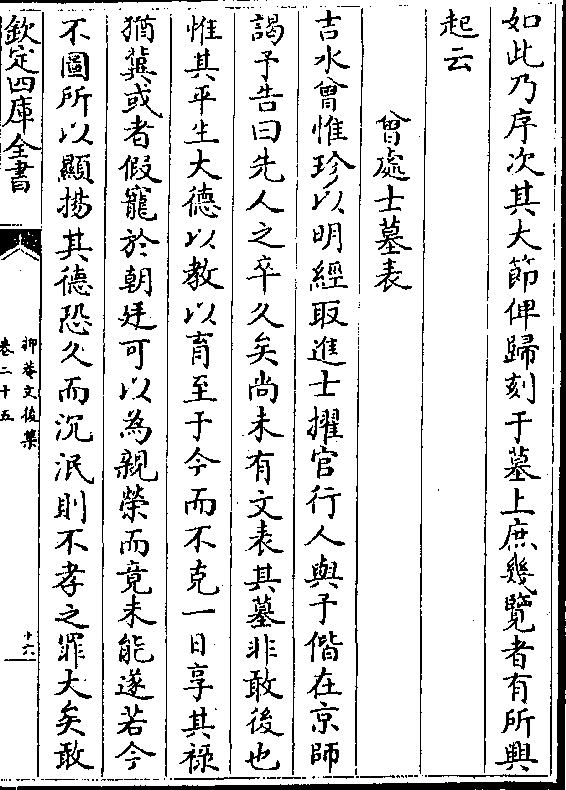 如此乃序次其大節俾歸刻于墓上庶幾覽者有所興
起云
曾處士墓表
吉水曾惟珍以明經取進士擢官行人與予偕在京師
謁予告曰先人之卒久矣尚未有文表其墓非敢後也
惟其平生大德以教以育至于今而不克一日享其祿
猶冀或者假寵於朝廷可以為親榮而竟未能遂若今
不圖所以顯揚其德恐久而沉泯則不孝之罪大矣敢
欽定四庫全書
抑菴文後集
卷二十五
十六